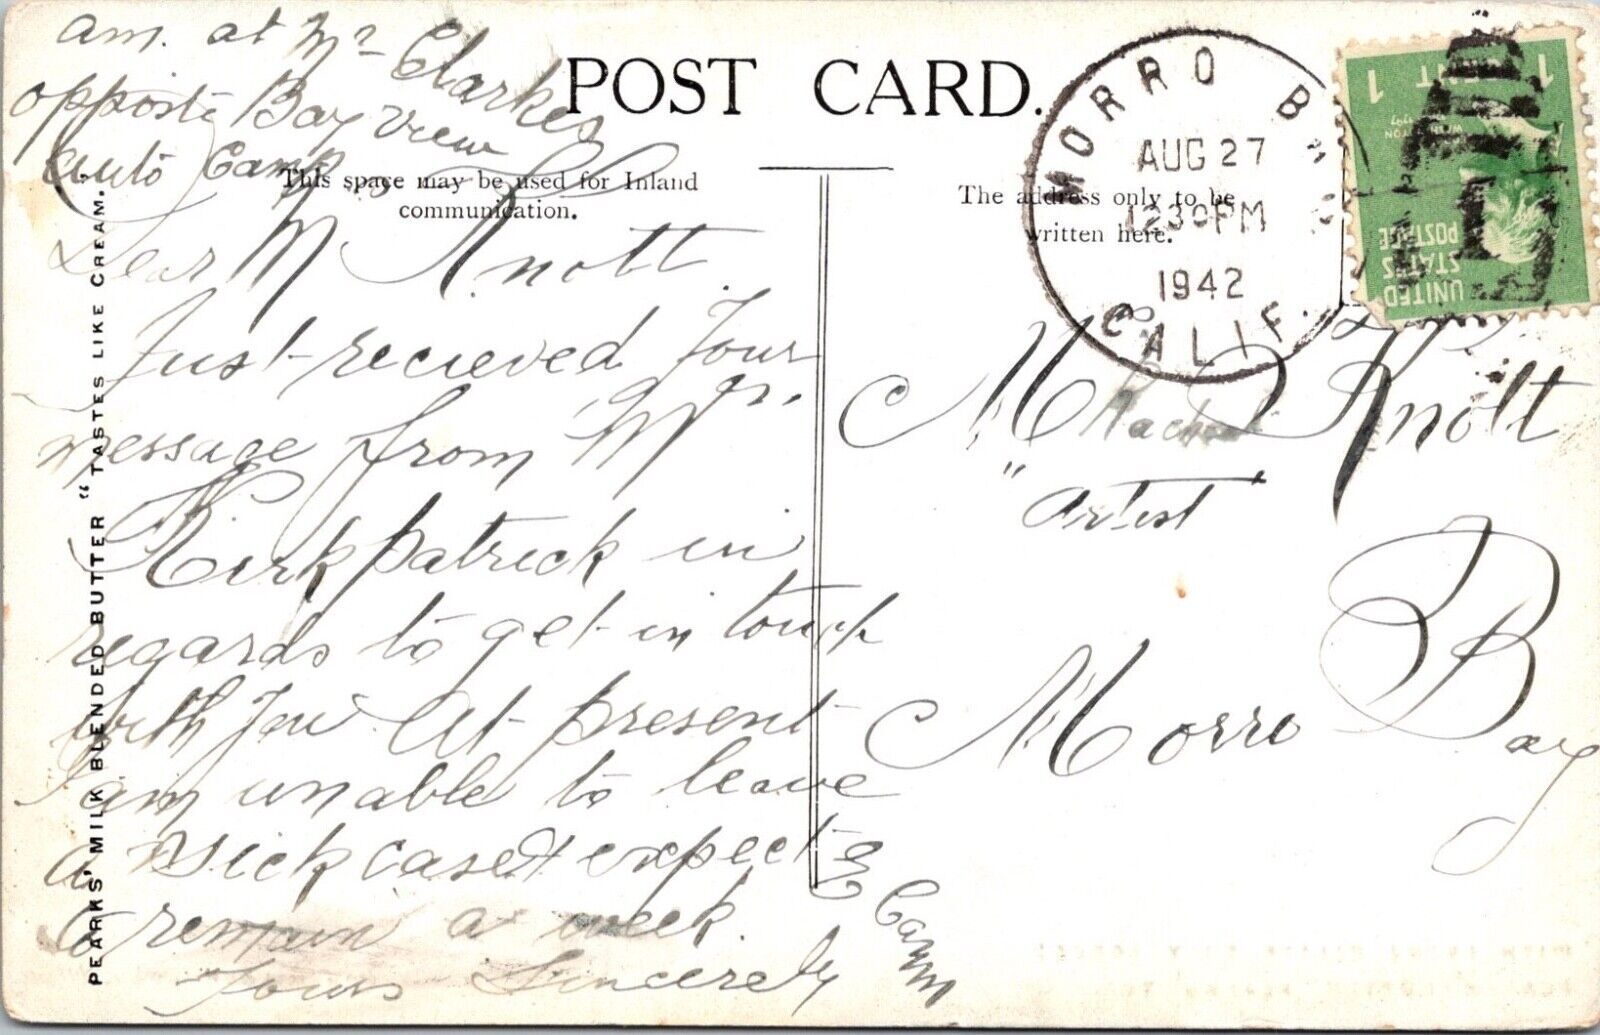 am. at Mrs Clarkes
opposite Bay View
Auto Camp
POST CARD.
This space may be used for Inland
communication.
The address only to be
written here.
MORRO BAY
AUG 27
1230PM
1942
CALIF.
1 CENT 1
UNITED
STATES
POSTAGE
PEARKS' MILK BLENDED BUTTER "TASTES LIKE CREAM."
Dear M Knott
Just recieved Your
message from Mr.
Kirkpatrick in
regards to get in touch
with You. At present
I am unable to leave
a sick case & expect
to remain a week.
Yours Sincerely
E Camm
M Knott
"Artist"
Morro Bay